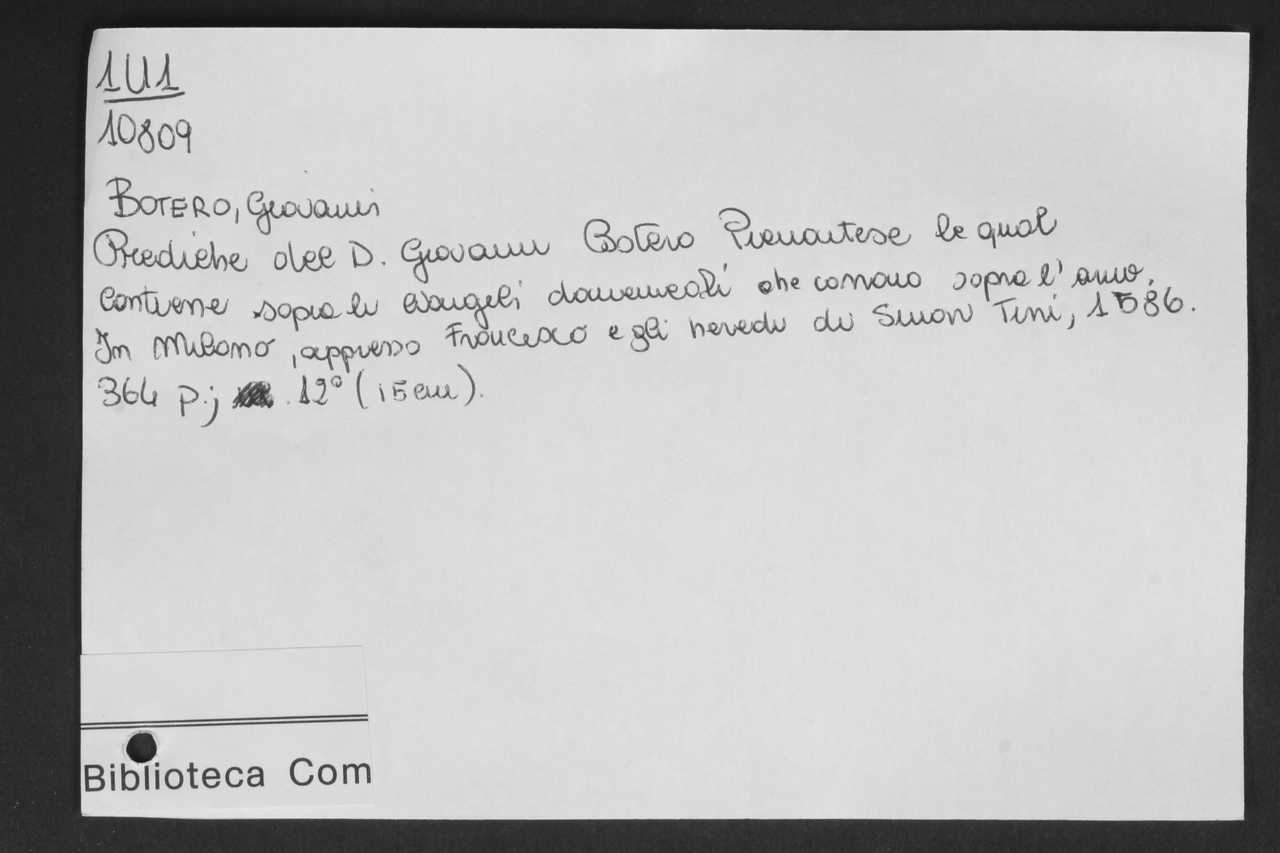 1U1
10809
BOTERO, Giovanni
Prediche del D. Giovanni Botero Piemontese le qual
contiene sopra li evangeli domenicali che corrono sopra l'anno.
In Milano, appresso Francesco e gli heredi di Simon Tini, 1586.
364 p.; 12° (15 cm).
Biblioteca Com